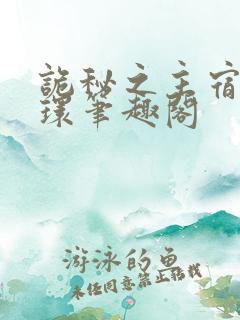 诡秘之主宿
环笔趣阁
游泳的鱼
未经同意禁止转载